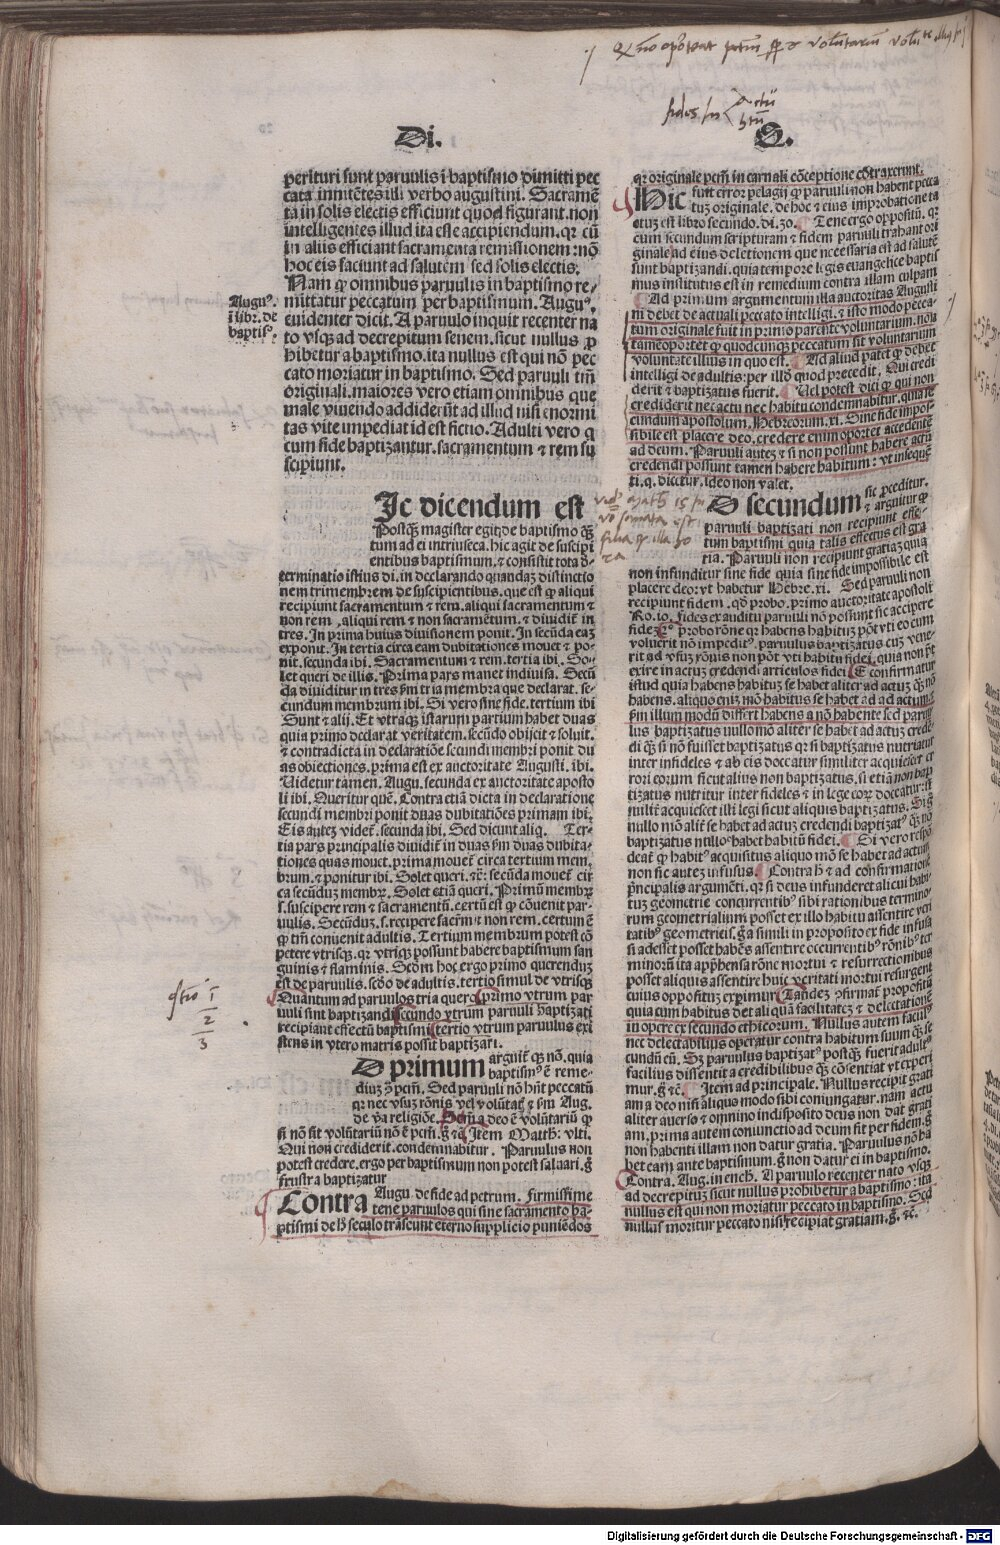 Di.
perituri sunt paruulis ī baptismo dimitti pec
cata innitētes illi verbo augustini. Sacramē
ta in solis electis efficiunt quod figurant. non
intelligentes illud ita esse accipiendum. qꝛ cū
in aliis efficiant sacramenta remissionem: nō
hoc eis faciunt ad salutem sed solis electis.
Nam ꝙ omnibus paruulis in baptismo re/
mittatur peccatum per baptismum. Augꝰ.
euidenter dicit. A paruulo inquit recenter na
to vsqꝫ ad decrepitum senem. sicut nullus ꝓ
hibetur a baptismo. ita nullus est qui nō pec
cato moriatur in baptismo. Sed paruuli tm̄
originali. maiores vero etiam omnibus que
male viuendo addiderūt ad illud nisi enormi
tas vite impediat id est fictio. Adulti vero q
cum fide baptizantur. sacramentum ⁊ rem su
scipiunt.
Augꝰ.
ī libr. de
baptisꝰ.
Ic dicendum est
Postqꝫ magister egit de baptismo qꝫ
tum ad ei intriuseca. hic agit de suscipi
entibus baptismum. ⁊ consistit tota d̄/
terminatio istius di. in declarando quandaꝫ distinctio
nem trimembrem de suscipientibus. que est ꝙ aliqui
recipiunt sacramentum ⁊ rem. aliqui sacramentum ⁊
non rem. aliqui rem ⁊ non sacramētum. ⁊ diuidit̄ in
tres. In prima huius diuisionem ponit. In secūda eaꝫ
exponit. In tertia circa eam dubitationes mouet ⁊ po/
nit. secunda ibi. Sacramentum ⁊ rem. tertia ibi. So/
let queri de illis. Prima pars manet indiuisa. Secū
da diuiditur in tres s̄m tria membra que declarat. se/
cundum membrum ibi. Si vero sine fide. tertium ibi
Sunt ⁊ alij. Et vtraqꝫ istarum partium habet duas
quia primo declarat veritatem. secūdo obijcit ⁊ soluit.
⁊ contradicta in declaratiōe secundi membri ponit du
as obiectiones. prima est ex auctoritate Augusti. ibi.
Uidetur tamen. Augu. secunda ex auctoritate aposto
li ibi. Queritur quē. Contra etiā dicta in declaratione
secundi membri ponit duas dubitatiōes primam ibi.
Eis auteꝫ videt̄. secunda ibi. Sed dicunt aliq. Ter/
tia pars principalis diuidit̄ in duas s̄m duas dubita/
tiones quas mouet. prima mouet̄ circa tertium mem/
brum. ⁊ ponitur ibi. Solet queri. ⁊c̄. secūda mouet̄ cir
ca secūduꝫ membrꝫ. Solet etiā queri. Primū membrꝫ
s. suscipere rem ⁊ sacramentū. certū est ꝙ cōuenit par/
uulis. Secūduꝫ. s. recipere sacrm̄ ⁊ non rem. certum ē
ꝙ tm̄ conuenit adultis. Tertium membrum potest cō
petere vtrisqꝫ. qꝛ vtriqꝫ possunt habere baptismum san
guinis ⁊ flaminis. Scd̄m hoc ergo primo querenduꝫ
est de paruulis. secūo de adultis. tertio simul de vtrisqꝫ
Quantum ad paruulos tria quero. primo vtrum par
uuli sint baptizandi. secundo vtrum paruuli baptizati
recipiant effectū baptismi. tertio vtrum paruulus exi
stens in vtero matris possit baptizari.
1
2
3
D primum arguit̄ qꝫ nō. quia
baptismꝰ ē reme/
diuꝫ ꝯ pctm̄. Sed paruuli nō hn̄t peccatū
qꝛ nec vsuꝫ rōnis vel volūtatꝭ ⁊ s̄m Aug.
de v̄a religiōe. Pctm̄ a deo ē volūtariū ꝙ
si nō sit volūtariū nō ē pctm̄. g̊ ⁊c̄. Item Matth. vlti.
Qui non crediderit. condemnabitur. Paruulus non
potest credere. ergo per baptismum non potest saluari. g̊
frustra baptizatur
Contra Augu. de fide ad petrum. firmissime
tene paruulos qui sine sacramento ba/
ptismi de hꝰ seculo trāseunt eterno supplicio puniēdos
S.
qꝛ originale pctm̄ in carnali cōceptione cōtraxerunt.
Hic fuit error pelagij ꝙ paruuli non habent pecca
tuꝫ originale. de hoc ⁊ eius improbatione ta
ctuꝫ est libro secundo. di. 30. Tene ergo oppositū. qꝛ
cum secundum scripturam ⁊ fidem paruuli trahant ori
ginale ad eius deletionem que necessaria est ad salutē
sunt baptizandi. quia tempore legis euangelice baptis
mus institutus est in remedium contra illam culpam
Ad primum argumentum illa auctoritas Augusti
ni debet de actuali peccato intelligi. ⁊ isto modo pecca/
tum originale fuit in primo parente voluntarium. non
tamē oportet ꝙ quodcunqꝫ peccatum sit voluntarium
voluntate illius in quo est. Ad aliud patet ꝙ debet
intelligi de adultis: per illd̄ quod precedit. Qui credi
derit ⁊ baptizatus fuerit. Uel potest dici ꝙ qui non
crediderit nec actu nec habitu condemnabitur. quia se
cundum apostolum. Hebreorum. xi. Sine fide impos/
sibile est placere deo. credere enim oportet accedentē
ad deum. Paruuli auteꝫ ⁊ si non possunt habere actū
credendi possunt tamen habere habitum: vt in sequē
ti. q. dicetur. Ideo non valet.
D secundum sic ꝓceditur.
⁊ arguitur ꝙ
paruuli baptizati non recipiunt effe/
ctum baptismi quia talis effectus est gra
tia. Paruuli non recipiunt gratiaꝫ quia
non infunditur sine fide quia sine fide impossibile est
placere deo: vt habetur Hebre. xi. Sed paruuli non
recipiunt fidem. qd̄ probo. primo auctoritate apostoli
Ro. io. fides ex auditu paruuli nō possunt sic accipere
fideꝫ. 2ᵒ probo rōne qꝛ habens habituꝫ pōt vti eo cum
voluerit nō impeditꝰ. paruulus baptizatꝰ cuꝫ vene/
rit ad vsuꝫ rōnis non pōt vti habitu fidei. quia non pōt
exire in actuꝫ credendi articulos fidei. Et confirmatur
istud quia habens habituꝫ se habet aliter ad actuꝫ qꝫ nō
habens. aliquo eniꝫ mō habitus se habet ad ad actum. ⁊
s̄m illum modū differt habens a nō habente sed paruu
lus baptizatus nullo mō aliter se habet ad actuꝫ crede/
di qꝫ si nō fuisset baptizatus qꝛ si baptizatus nutriatur
inter infideles ⁊ ab eis doceatur similiter acquiescet er
rori eorum sicut alius non baptizatus. si etiā non bap
tizatus nutritur inter fideles ⁊ in lege eorꝫ doceatur. si
milit̄ acquiescet illi legi sicut aliquis baptizatus. Si g̊
nullo mō alit̄ se habet ad actuꝫ credendi baptizatꝰ qꝫ nō
baptizatus nullo mō habet habitū fidei. Si vero respō
deat̄ ꝙ habitꝰ acquisitus aliquo mō se habet ad actum
non sic autez infusus. Contra h̄ ⁊ ad confirmationē
pn̄cipalis argumēti. qꝛ si deus infunderet alicui habi/
tuꝫ geometrie concurrentibꝰ sibi rationibus termino/
rum geometrialium posset ex illo habitu assentire veri
tatibꝰ geometricis. g̊ a simili in proposito ex fide infusa
si adesset posset habēs assentire occurrentibꝰ rōnibꝰ ter
minorū ita apprehensa rōne mortui ⁊ resurrectionibus
posset aliquis assentire huic veritati mortui resurgent
cuius oppositum experimur. Tandeꝫ ꝯfirmat̄ propositū
quia cum habitus det aliquā facilitateꝫ ⁊ delectationē
in opere ex secundo ethicorum. Nullus autem faciliꝰ
nec delectabilius operatur contra habitum suum qꝫ se
cundū eū. Sꝫ paruulus baptizatꝰ postqꝫ fuerit adultꝰ
facilius dissentit a credibilibus qꝫ cōsentiat vt experi
mur. g̊ ⁊c̄. Item ad principale. Nullus recipit grati
am a deo nisi aliquo modo sibi coniungatur. nam actu
aliter auerso ⁊ omnino indisposito deus non dat grati
am. prima autem coniunctio ad deum fit per fidem. g̊
non habenti illam non datur gratia. Paruulus nō ha
bet eam ante baptismum. g̊ non datur ei in baptismo.
Contra. Aug. in ench. A paruulo recenter nato vsqꝫ
ad decrepituꝫ sicut nullus prohibetur a baptismo: ita
nullus est qui non moriatur peccato in baptismo. Sed
nullus moritur peccato nisi recipiat gratiam. g̊. ⁊c̄.
Digitalisierung gefördert durch die Deutsche Forschungsgemeinschaft - DFG